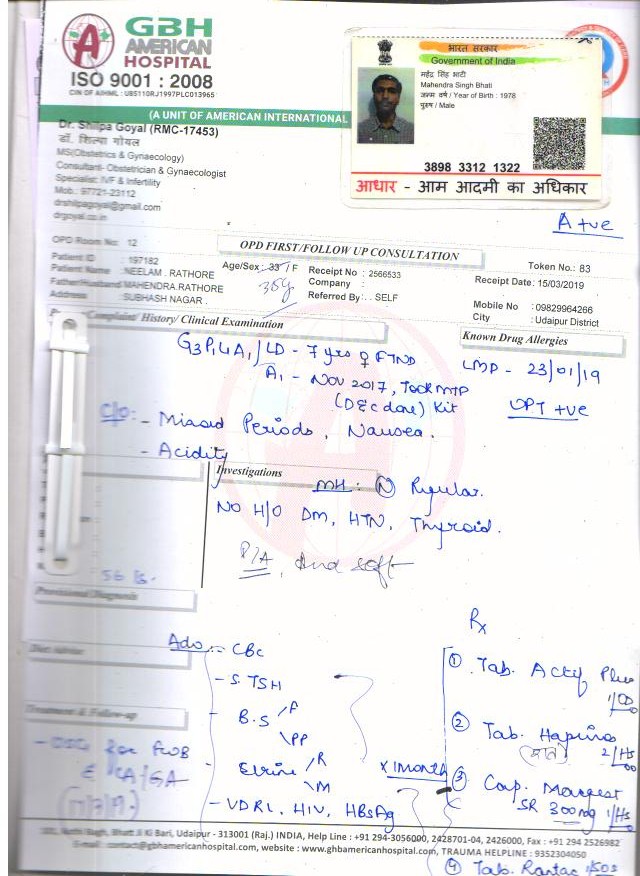 GBH
AMERICAN
HOSPITAL
ISO 9001 : 2008
CIN OF AIHML : U85110RJ1997PLC013965
(A UNIT OF AMERICAN INTERNATIONAL
भारत सरकार
Government of India
महेंद्र सिंह भाटी
Mahendra Singh Bhati
जन्म वर्ष / Year of Birth : 1978
पुरुष / Male
3898 3312 1322
आधार - आम आदमी का अधिकार
Dr. Shilpa Goyal (RMC-17453)
डॉ. शिल्पा गोयल
MS(Obstetrics & Gynaecology)
Consultant- Obstetrician & Gynaecologist
Specialist: IVF & Infertility
Mob.: 97721-23112
drshilpagoyal@gmail.com
drgoyal.co.in
A +ve
OPD Room No: 12
OPD FIRST/FOLLOW UP CONSULTATION
Token No.: 83
Patient ID : 197182
Patient Name : NEELAM . RATHORE
Father/Husband MAHENDRA.RATHORE
Address : SUBHASH NAGAR .
Age/Sex : 33 / F
35y
Receipt No : 2566533
Company :
Referred By : . SELF
Receipt Date: 15/03/2019
Mobile No : 09829964266
City : Udaipur District
Complaint/ History/ Clinical Examination
Known Drug Allergies
G3P1L1A1 / LD - 7 yrs ♀ FTND
A1 - Nov 2017, Took MTP
(D&C done) Kit
LMP - 23/01/19
UPT +ve
C/o: - Missed Periods, Nausea.
- Acidity
Investigations
MH: (N) Regular.
No H/O DM, HTN, Thyroid.
P/A, soft
56
Provisional Diagnosis
Diet Advise
Treatment & Follow-up
Adv. - CBC
- S. TSH
- B.S / F
\ PP
- Urine / R
\ M
- VDRL, HIV, HBsAg
x 1 month
Rx
① Tab. Plus
1/OD
② Tab.
2/HS
③ Cap.
SR 300mg 1/HS
④ Tab. Rantac 1/SOS
Bhatt Ji Ki Bari, Udaipur - 313001 (Raj.) INDIA, Help Line : +91 294-3056000, 2428701-04, 2426000, Fax : +91 294 2526982
E-mail : contact@gbhamericanhospital.com, website : www.ghbamericanhospital.com, TRAUMA HELPLINE : 9352304050